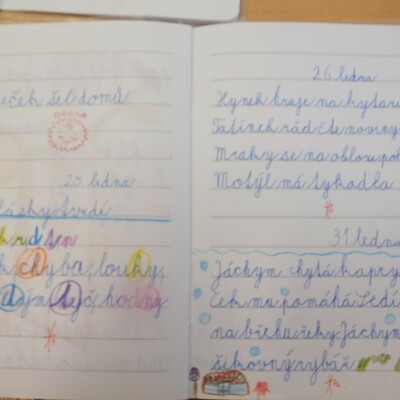 šel domů
25 ledna
tvrdé
chyba, louky,
dým, tyč, hodny
26 ledna
Hynek hraje na kytaru
Tatínek rád čte noviny
Mraky se na obloze
Motýl má tykadla
31 ledna
Jáchym chytá kapry
ček mu pomáhá Sedí
na břehu řeky Jáchym
šikovný rybář